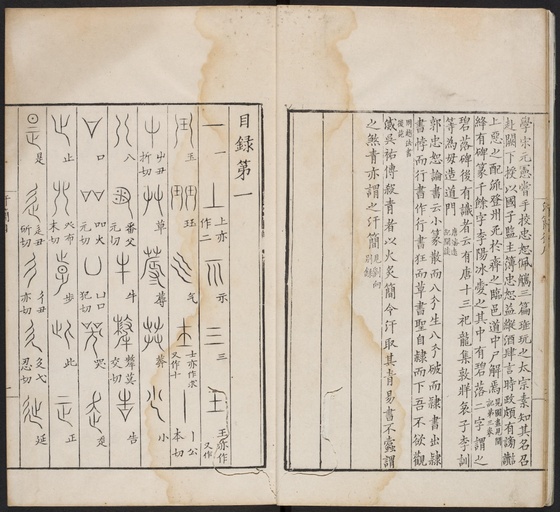 學宋元憲嘗手校忠恕佩觽三篇寶玩之太宗素知其名召
赴闕下授以國子監主簿忠恕益縱酒肆言時政頗有謗讟
上惡之配流登州死於齊之臨邑道中尸解焉
絳有碑篆千餘字李陽冰愛之其中有碧落二字謂之
碧落碑後有識者云有唐十三祀龍集敦牂哀子李訓
等為母造道門
郭忠恕論書云小篆散而八分生八分破而隸書出隸
書悖而行書作行書狂而草書聖自隸而下吾不欲觀
後漢吳祐傳殺青者以火炙簡令汗取其青易書不蠹謂
之煞青亦謂之汗簡
目録第一
一
上亦作二
示
三
王亦作
玉
玨
气
士亦作
丨公本切
屮丑折切
草
蓐
茻
小
八
番父
牛
犛莫交切
告
口
凵口犯切
哭
走
止
步
此
正
是
辵丑
彳丑亦切
廴弋忍切
㢟